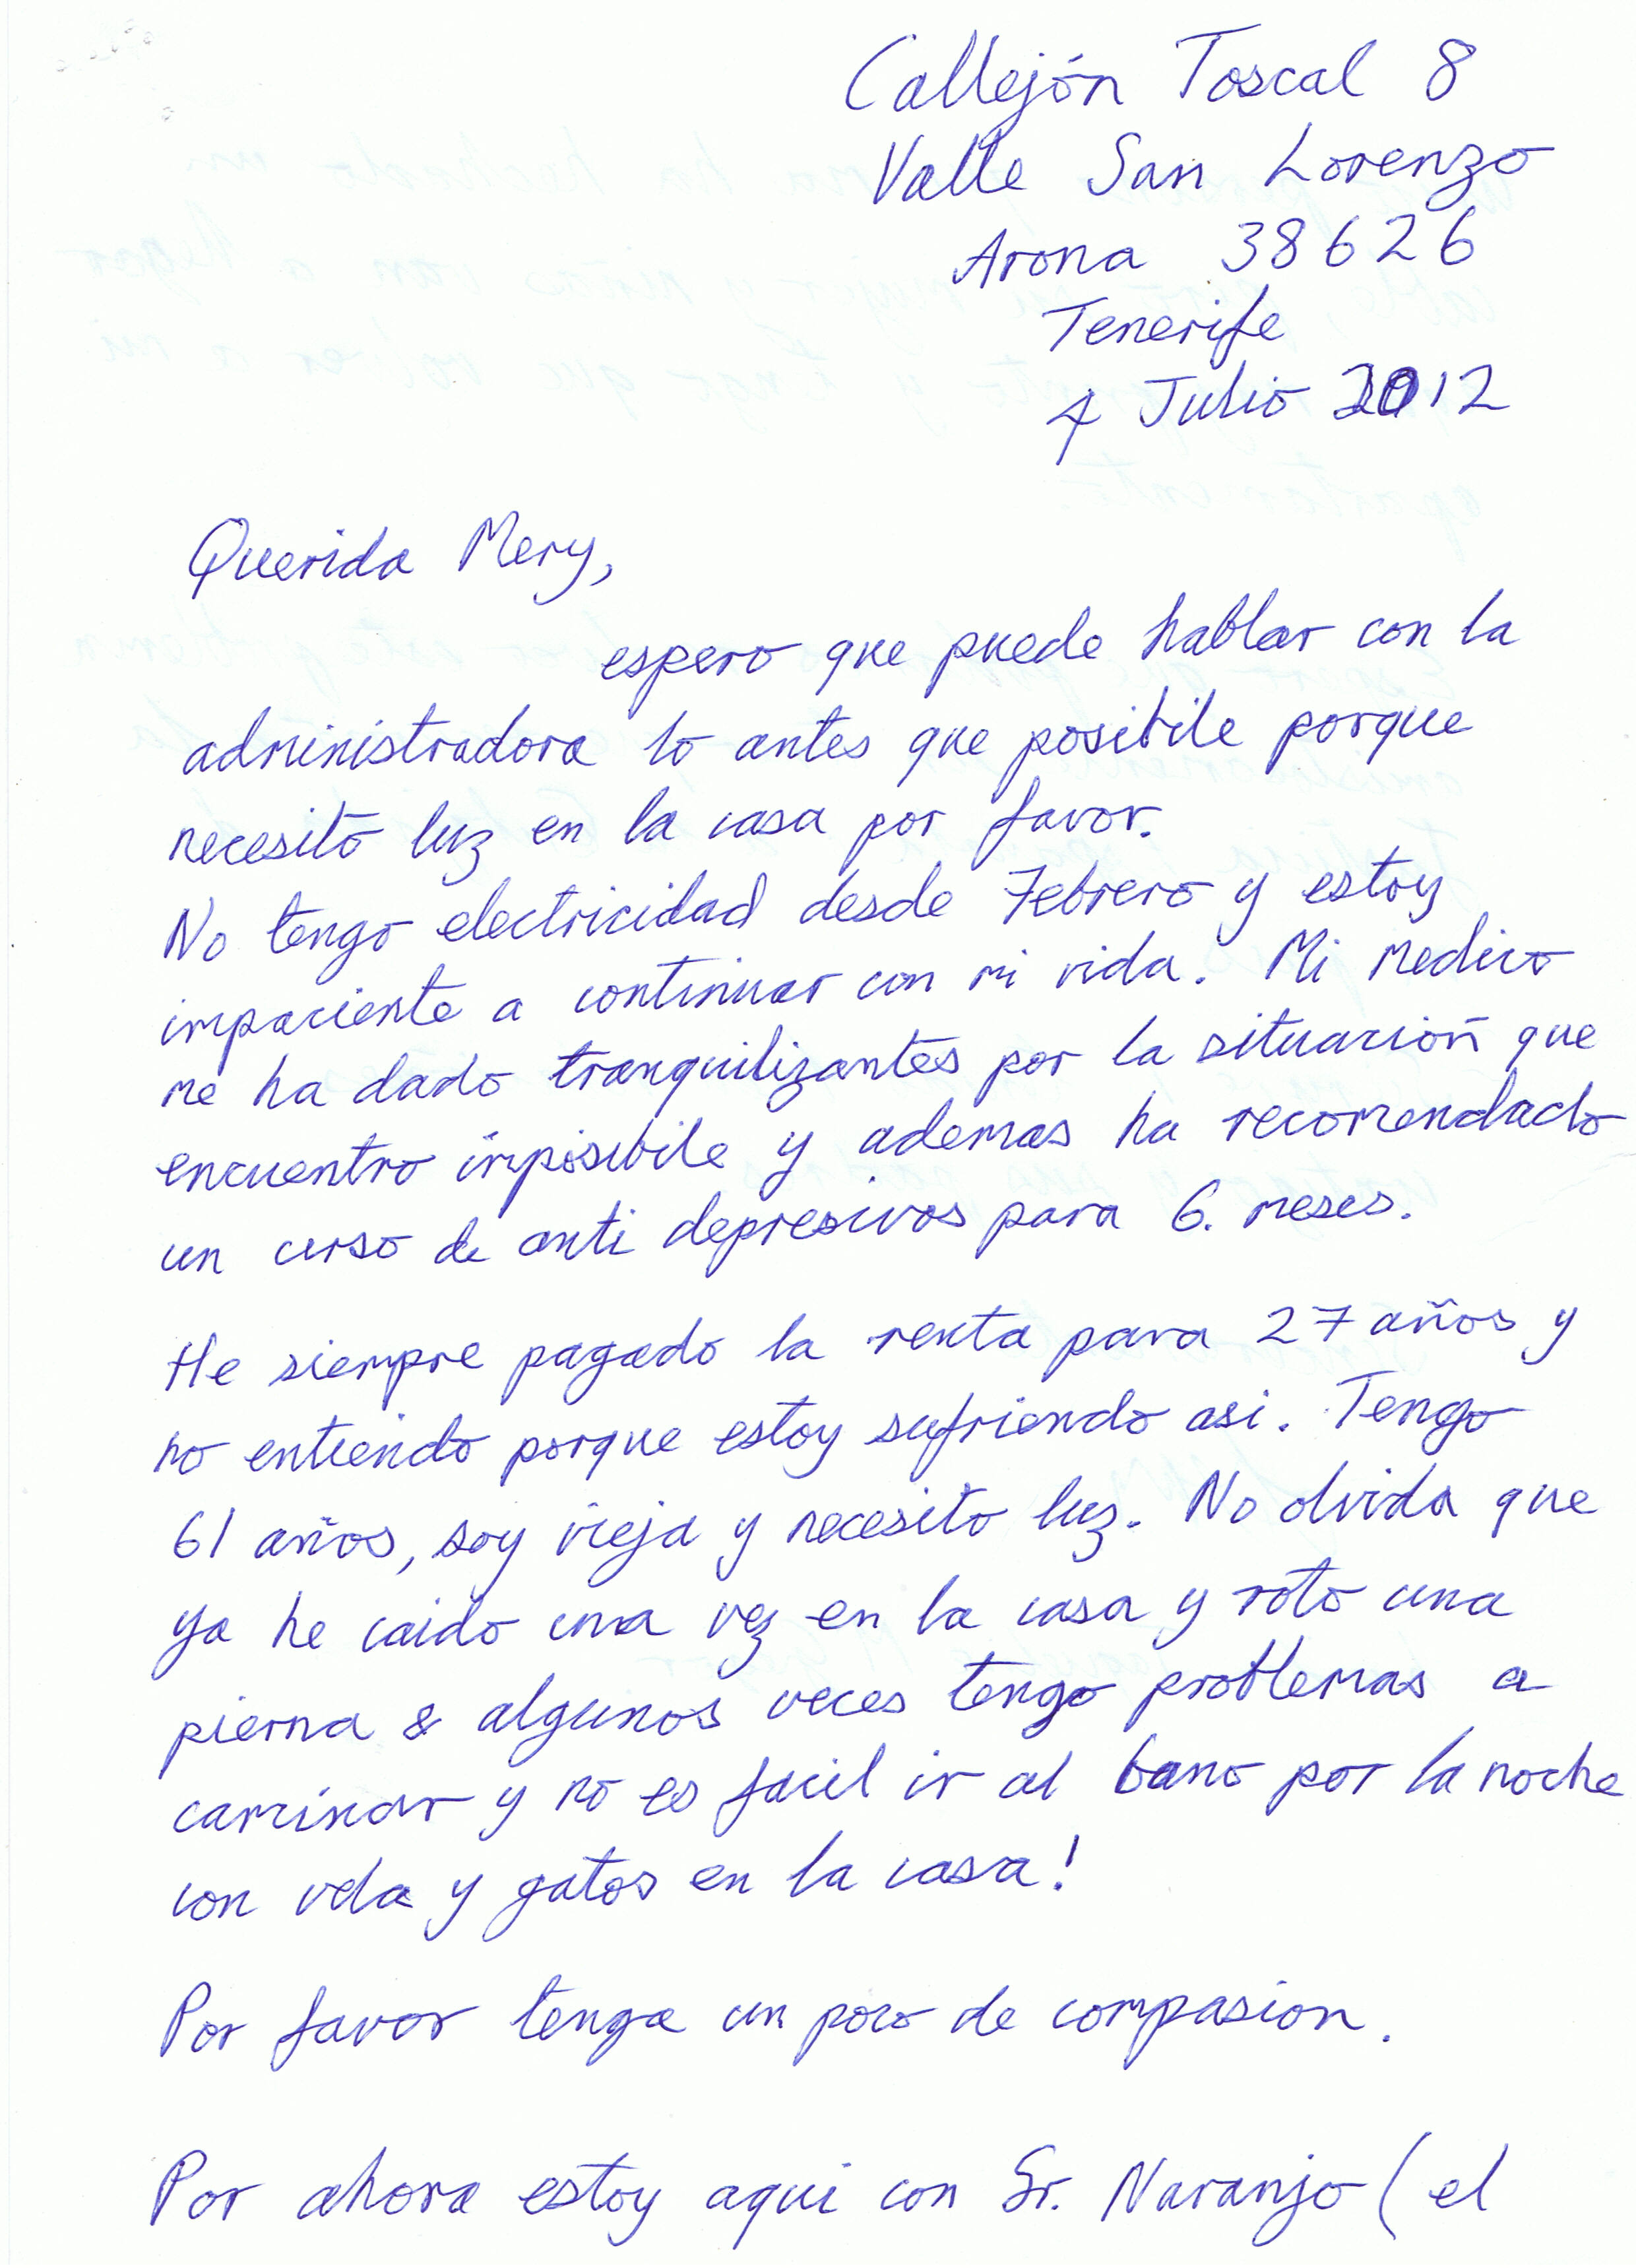 Callejón Toscal 8
Valle San Lorenzo
Arona 38626
Tenerife
4 Julio 2012
Querida Mery,
espero que puede hablar con la
administradora lo antes que posibile porque
necesito luz en la casa por favor.
No tengo electricidad desde Febrero y estoy
impaciente a continuar con mi vida. Mi medico
me ha dado tranquilizantes por la situación que
encuentro imposibile y ademas ha recomendado
un curso de anti depresivos para 6. meses.
He siempre pagado la renta para 27 años y
no entiendo porque estoy sufriendo asi. Tengo
61 años, soy vieja y necesito luz. No olvida que
ya he caido una vez en la casa y roto una
pierna & algunos veces tengo problemas a
caminar y no es facil ir al bano por la noche
con vela y gatos en la casa!
Por favor tenga un poco de compasion.
Por ahora estoy aqui con Sr. Naranjo (el